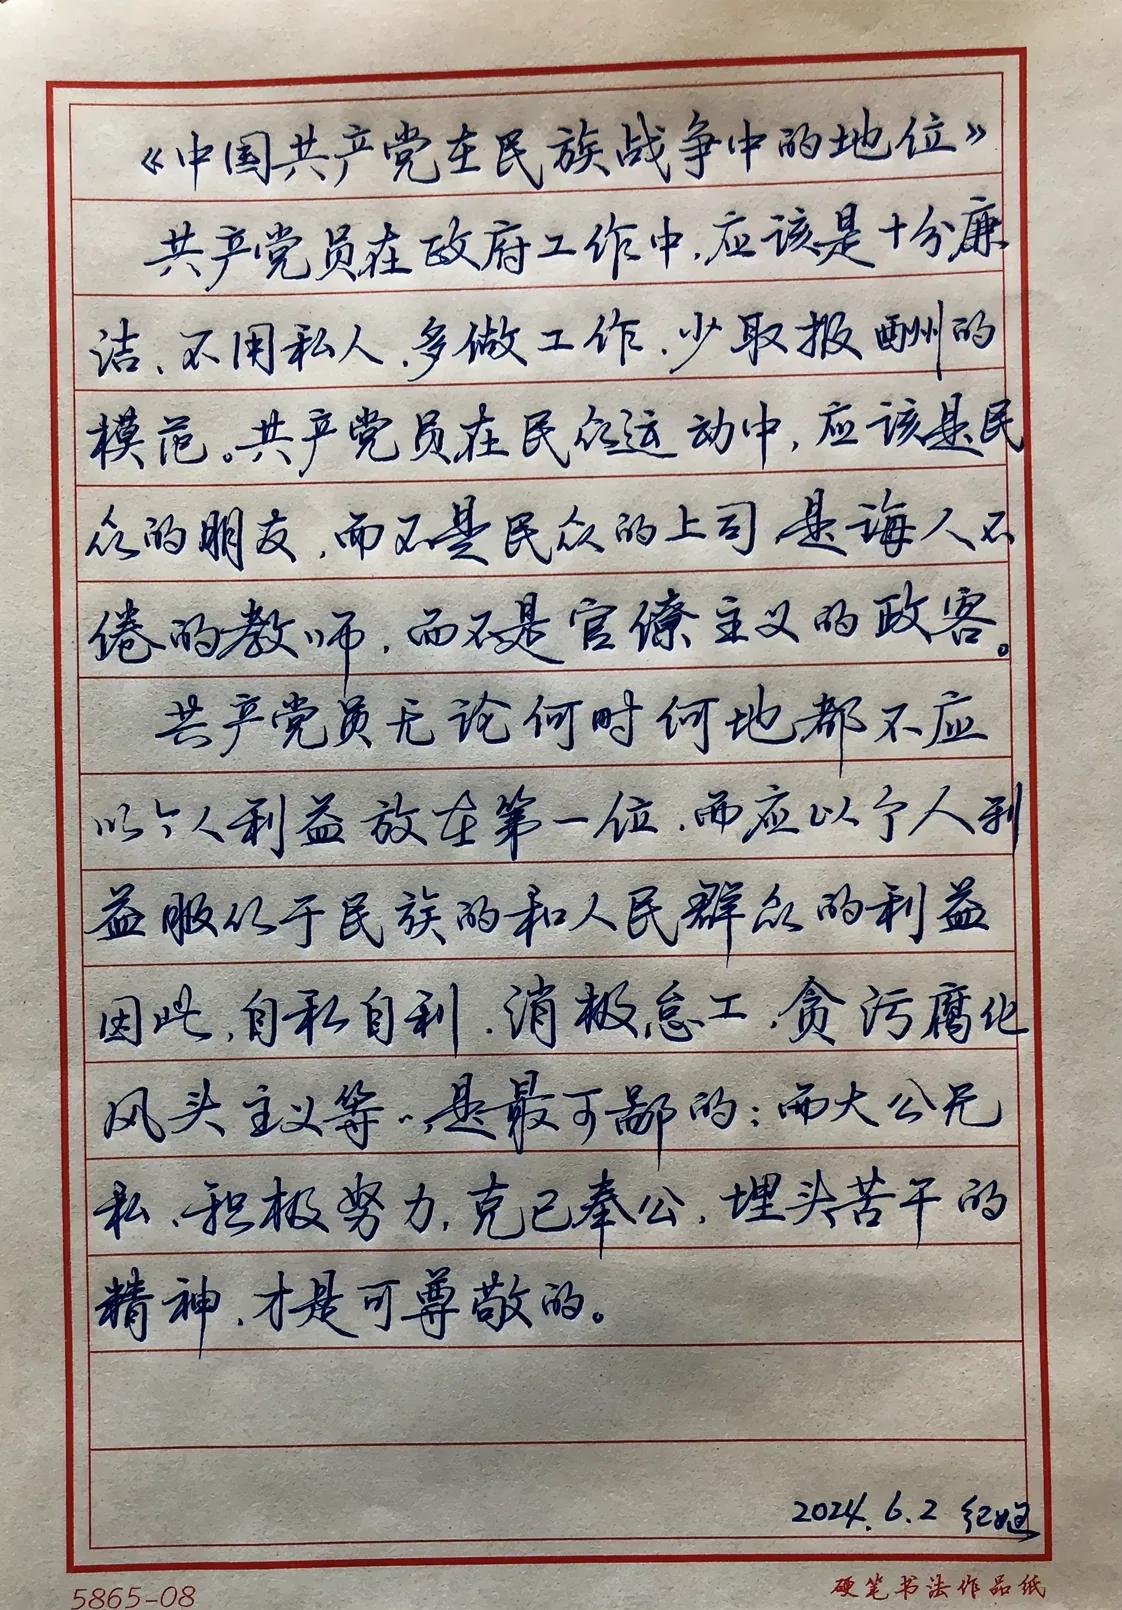 《中国共产党在民族战争中的地位》
共产党员在政府工作中，应该是十分廉
洁、不用私人、多做工作、少取报酬的
模范。共产党员在民众运动中，应该是民
众的朋友，而不是民众的上司，是诲人不
倦的教师，而不是官僚主义的政客。
共产党员无论何时何地都不应
以个人利益放在第一位，而应以个人利
益服从于民族的和人民群众的利益
因此，自私自利，消极怠工，贪污腐化
风头主义等..，是最可鄙的；而大公无
私、积极努力，克己奉公，埋头苦干的
精神，才是可尊敬的。
2024.6.2 纪
5865-08
硬笔书法作品纸